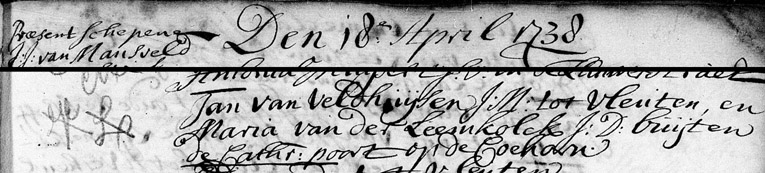 Præsent Schepene
J: van Mansveld
Den 18e April 1738
Jan van Velthuijsen J: M: tot Vleuten, en
Maria van der Leemkolck J: D: buijten
de Cathr: poort op de Coehorn
Vleuten